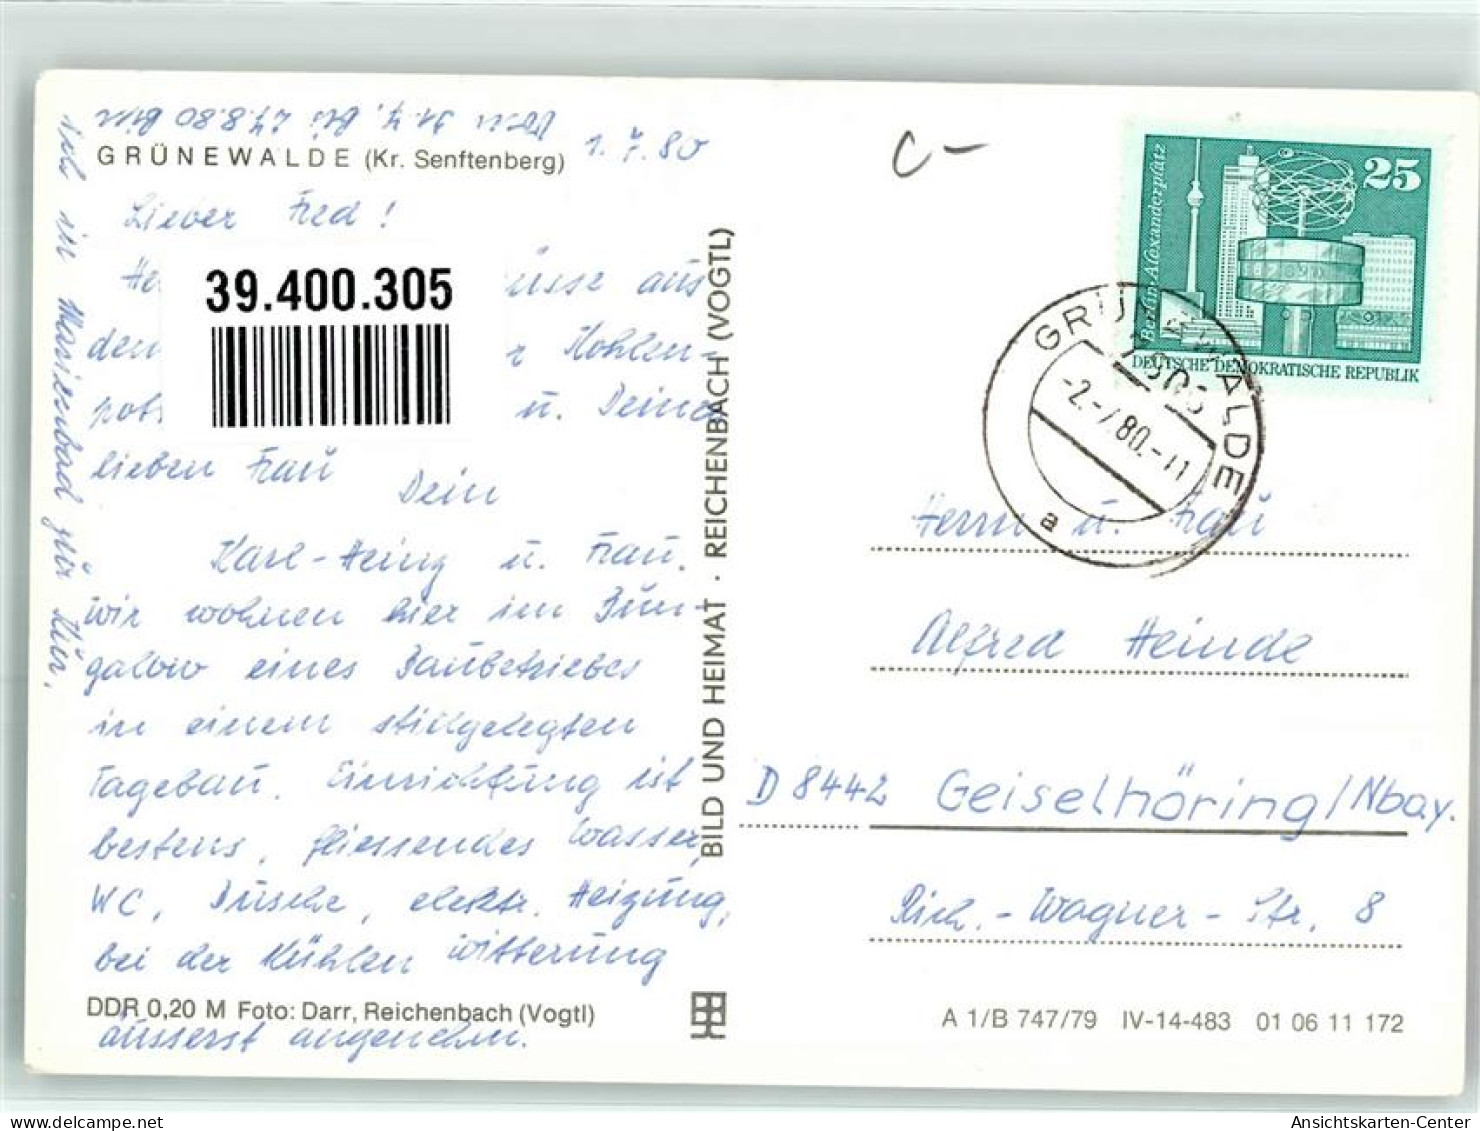 Vom 31.7. bis 27.8.80 bin
ich in Marienbad zur Kur.
GRÜNEWALDE (Kr. Senftenberg)
1.7.80
Lieber Fred!
39.400.305
aus
Kohlen-
u. Deine
lieben Frau
Dein
Karl-Heinz u. Frau.
Wir wohnen hier im Bun-
galow eines Baubetriebes
in einem stillgelegten
Tagebau. Einrichtung ist
bestens, fliessendes Wasser,
WC, Dusche, elektr. Heizung,
bei der kühlen Witterung
äusserst angenehm.
DDR 0,20 M Foto: Darr, Reichenbach (Vogtl)
BILD UND HEIMAT · REICHENBACH (VOGTL)
C-
Berlin-Alexanderplatz
25
DEUTSCHE DEMOKRATISCHE REPUBLIK
GRÜNEWALDE
-2.-7.80.-11
a
Herrn u. Frau
Alfred Heinde
D 8442 Geiselhöring/Nbay.
Rich.-Wagner-Str. 8
A 1/B 747/79 IV-14-483 01 06 11 172
Ansichtskarten-Center